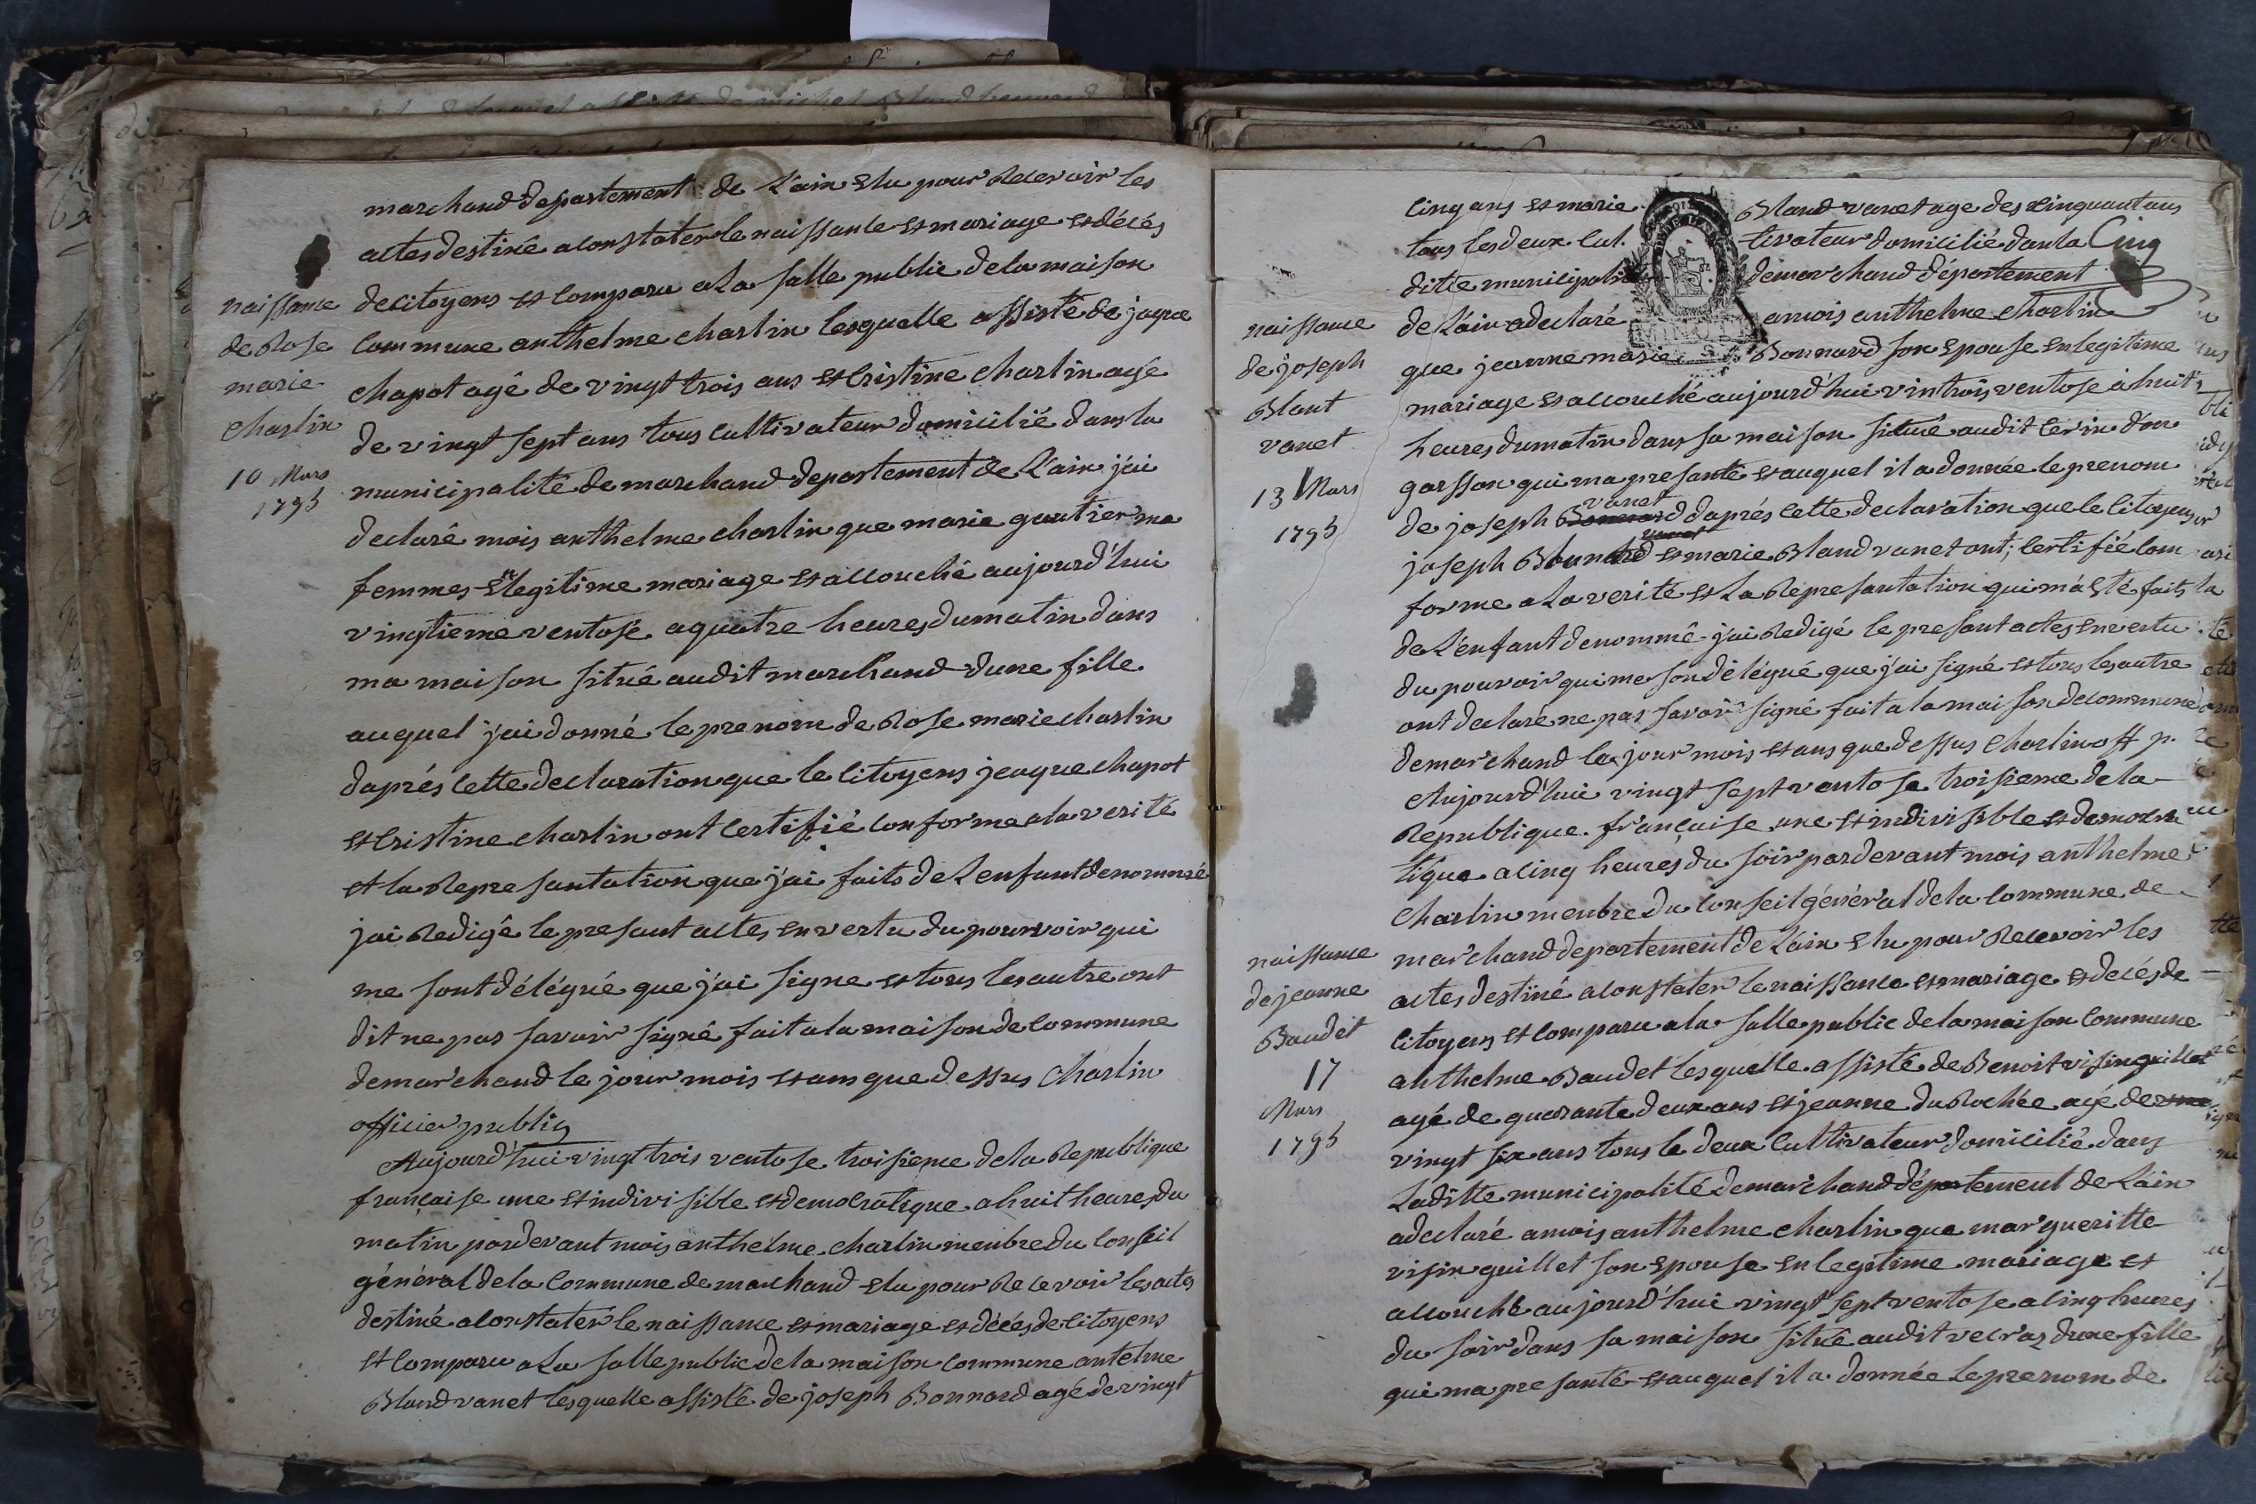 marchand departement de L'ain Elu pour Recevoir les
actes destiné a constater le naissance et mariage et décés
de citoyens et comparu a La salle public de la maison
commune anthelme charlin lesquelle assisté de jaque
chapot agé de vingt trois ans et Cristine charlin agé
de vingt sept ans tous cultivateur domicilié dans la
municipalité de marchand departement de L'ain j'ai
declaré mois anthelme charlin que marie gautier ma
femmes en legitime mariage et accouché aujourd'hui
vingtieme ventose a quatre heures du matin dans
ma maison situé audit marchand d'une fille
auquel j'ai donné le prenom de Rose marie charlin
d'aprés cette declaration que le citoyens jeaque chapot
et Cristine charlin ont certifié conforme a la verité
et la Represantation que j'ai faits de L'enfant denommé
j'ai Redigé le presant actes en vertu du pourvoir qui
me sont délégué que j'ai signe et tous les autre ont
dit ne pas savoir signé fait a la maison de commune
de marchand le jour mois et ans que dessus Charlin
officier public
naissance
de Rose
marie
charlin
10 Mars
1795
Aujourd'hui vingt trois ventose troisieme de la Republique
française une et indivisible et democratique a huit heures du
matin pardevant mois anthelme charlin menbre du conseil
général de la commune de marchand elu pour Recevoir les actes
destiné a constater le naissance et mariage et décés de citoyens
et comparu a La salle public de la maison commune antelme
Bland vanet lesquelle assisté de joseph Bonnard agé de vingt
cinq ans et marie Bland vanet age des cinquant ans
tous les deux cul. tivateur domicilié dans la Cinq
ditte municipalité de marchand département
de L'ain a declaré a mois anthelme charlin
que jeanne marie Bonnard son Epouse en legitime
mariage et accouché aujourd'hui vintrois ventose à huit
heures du matin dans sa maison situé audit cerin d'un
garsson qui ma presanté et auquel il a donnée le prenom
vanet
de joseph Bonnard d'aprés cette declaration que le citoyens
joseph Bounard et marie Bland vanet ont, certifié com
forme a La verité et La Represantation qui m'a Eté faits
de L'enfant denommé j'ai Redigé le presant actes en vertu
du pouvoir qui me son délégué que j'ai signé et tous les autre
ont declaré ne pas savoir signé fait a la maison de commune
de marchand le jour mois et ans que dessus Charlin off p.
naissance
de joseph
Blant
vanet
13 Mars
1795
Aujourd'hui vingt sept ventose troisieme de la
Republique française une et indivisible et democra
tique a cinq heures du soir par devant mois anthelme
Charlin menbre du conseil général de la commune de
marchand departement de L'ain Elu pour Recevoir les
actes destiné a constater le naissance et mariage et decés de
citoyens et comparu a la salle public de la maison commune
anthelme Baudet lesquelle assisté de Benoit visin guillet
agé de quarante deux ans et jeanne du Rochée agé de
vingt six ans tous le deux cultivateur domicilié dans
Laditte municipalité de marchand département de L'ain
a declaré a mois anthelme charlin que margueritte
visin guillet son Epouse en legitime mariage et
accouché aujourd'hui vingt sept ventose a cinq heures
du soir dans sa maison situé audit vecraz d'une fille
qui ma presanté et auquel il a donnée le prenom de
naissance
de jeanne
Baudet
17
Mars
1795